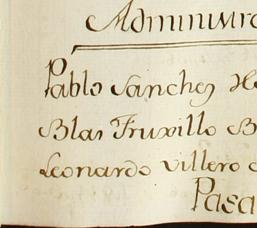 Administra
Pablo Sanchez He
Blas Truxillo B
Leonardo Villero
Pasa